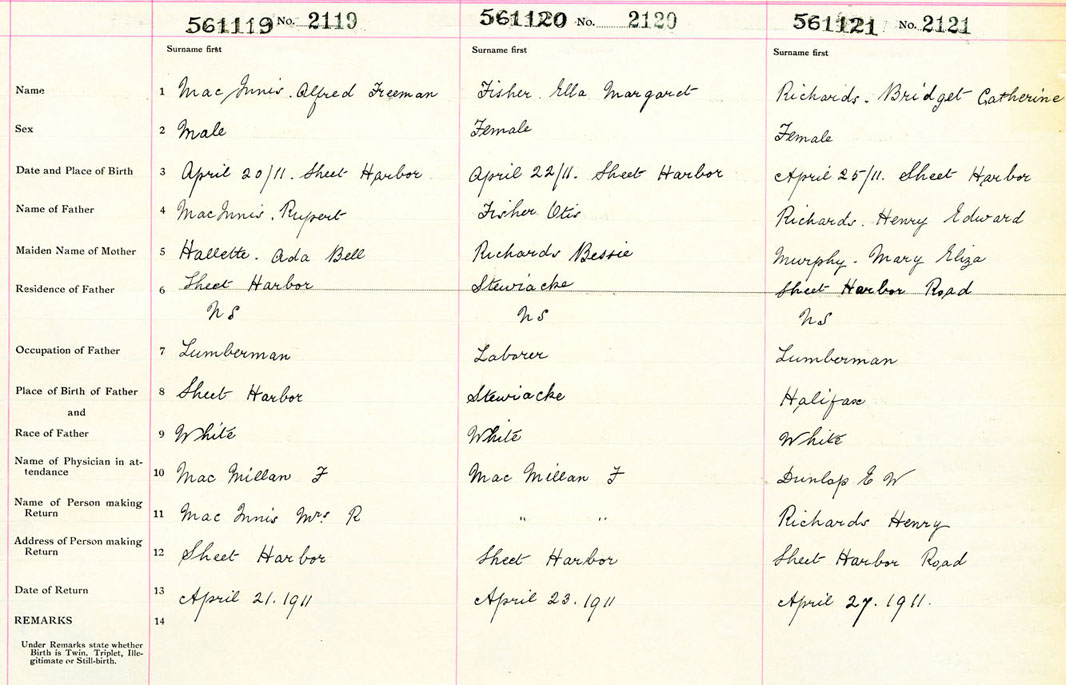 561119 No. 2119 561120 No. 2120 561121 No. 2121
Surname first Surname first Surname first
Name 1 Mac Innis. Alfred Freeman Fisher. Ella Margaret Richards. Bridget Catherine
Sex 2 Male Female Female
Date and Place of Birth 3 April 20/11. Sheet Harbor April 22/11. Sheet Harbor April 25/11. Sheet Harbor
Name of Father 4 MacInnis. Rupert Fisher Otis Richards. Henry Edward
Maiden Name of Mother 5 Hallette. Ada Bell Richards Bessie Murphy. Mary Eliza
Residence of Father 6 Sheet Harbor Stewiacke Sheet Harbor Road
NS NS NS
Occupation of Father 7 Lumberman Laborer Lumberman
Place of Birth of Father 8 Sheet Harbor Stewiacke Halifax
and
Race of Father 9 White White White
Name of Physician in at-
tendance 10 Mac Millan F Mac Millan F Dunlop E W
Name of Person making
Return 11 Mac Innis Mrs. R " " Richards Henry
Address of Person making
Return 12 Sheet Harbor Sheet Harbor Sheet Harbor Road
Date of Return 13 April 21. 1911 April 23. 1911 April 27. 1911.
REMARKS 14
Under Remarks state whether
Birth is Twin, Triplet, Ille-
gitimate or Still-birth.